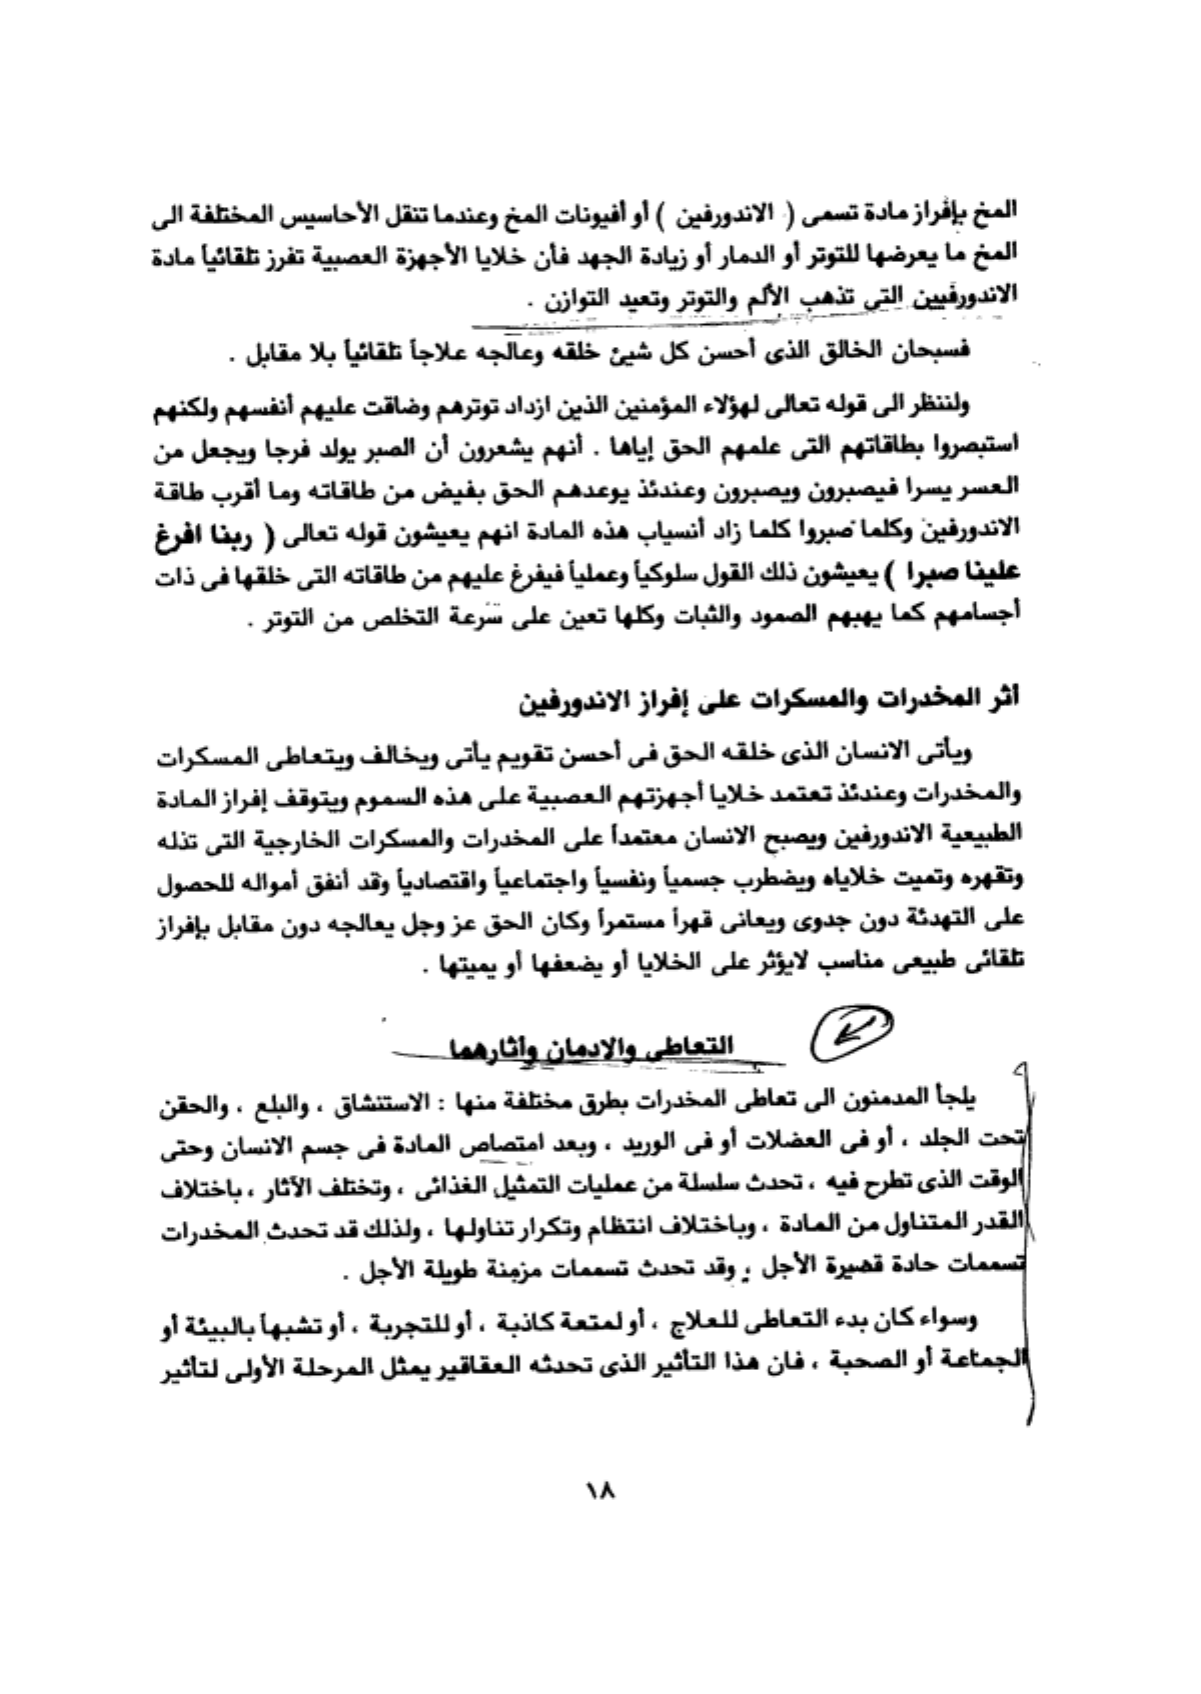 المخ بإفراز مادة تسمى ( الاندورفين ) أو أفيونات المخ وعندما تنقل الأحاسيس المختلفة الى
المخ ما يعرضها للتوتر أو الدمار أو زيادة الجهد فأن خلايا الأجهزة العصبية تفرز تلقائياً مادة
الاندورفيين التى تذهب الألم والتوتر وتعيد التوازن .
فسبحان الخالق الذى أحسن كل شيئ خلقه وعالجه علاجاً تلقائياً بلا مقابل .
ولننظر الى قوله تعالى لهؤلاء المؤمنين الذين ازداد توترهم وضاقت عليهم أنفسهم ولكنهم
استبصروا بطاقاتهم التى علمهم الحق إياها . أنهم يشعرون أن الصبر يولد فرجا ويجعل من
العسر يسرا فيصبرون ويصبرون وعندئذ يوعدهم الحق بفيض من طاقاته وما أقرب طاقة
الاندورفين وكلما صبروا كلما زاد أنسياب هذه المادة انهم يعيشون قوله تعالى ( ربنا افرغ
علينا صبرا ) يعيشون ذلك القول سلوكياً وعملياً فيفرغ عليهم من طاقاته التى خلقها فى ذات
أجسامهم كما يهبهم الصمود والثبات وكلها تعين على سرعة التخلص من التوتر .
أثر المخدرات والمسكرات على إفراز الاندورفين
ويأتى الانسان الذى خلقه الحق فى أحسن تقويم يأتى ويخالف ويتعاطى المسكرات
والمخدرات وعندئذ تعتمد خلايا أجهزتهم العصبية على هذه السموم ويتوقف إفراز المادة
الطبيعية الاندورفين ويصبح الانسان معتمداً على المخدرات والمسكرات الخارجية التى تذله
وتقهره وتميت خلاياه ويضطرب جسمياً ونفسياً واجتماعياً واقتصادياً وقد أنفق أمواله للحصول
على التهدئة دون جدوى ويعانى قهراً مستمراً وكان الحق عز وجل يعالجه دون مقابل بإفراز
تلقائى طبيعى مناسب لايؤثر على الخلايا أو يضعفها أو يميتها .
التعاطى والادمان وأثارهما
يلجأ المدمنون الى تعاطى المخدرات بطرق مختلفة منها : الاستنشاق ، والبلع ، والحقن
تحت الجلد ، أو فى العضلات أو فى الوريد ، وبعد امتصاص المادة فى جسم الانسان وحتى
الوقت الذى تطرح فيه ، تحدث سلسلة من عمليات التمثيل الغذائى ، وتختلف الآثار ، باختلاف
القدر المتناول من المادة ، وباختلاف انتظام وتكرار تناولها ، ولذلك قد تحدث المخدرات
تسممات حادة قصيرة الأجل ، وقد تحدث تسممات مزمنة طويلة الأجل .
وسواء كان بدء التعاطى للعلاج ، أو لمتعة كاذبة ، أو للتجربة ، أو تشبهاً بالبيئة أو
الجماعة أو الصحبة ، فان هذا التأثير الذى تحدثه العقاقير يمثل المرحلة الأولى لتأثير
١٨